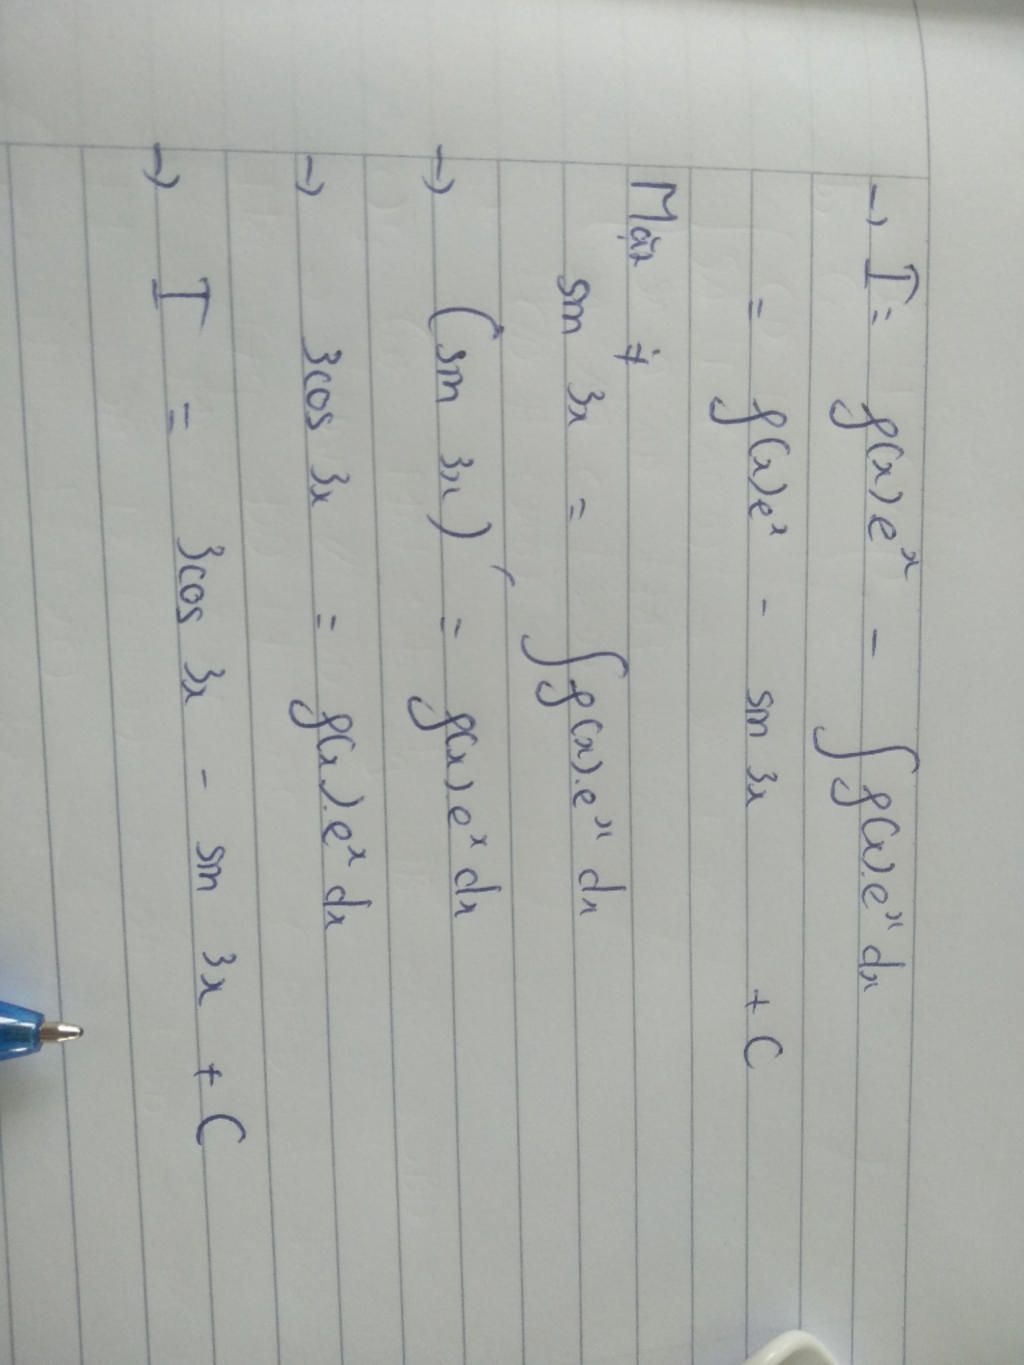 → I = f(x)e^x - ∫f(x).e^x dx
= f(x)e^x - sin 3x + C
Mặt ≠
sin 3x = ∫f(x).e^x dx
→ (sin 3x)' = f(x)e^x dx
→ 3cos 3x = f(x).e^x dx
→ I = 3cos 3x - sin 3x + C